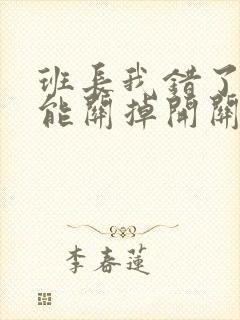 班長我錯了
能關掉開關
李春蓮